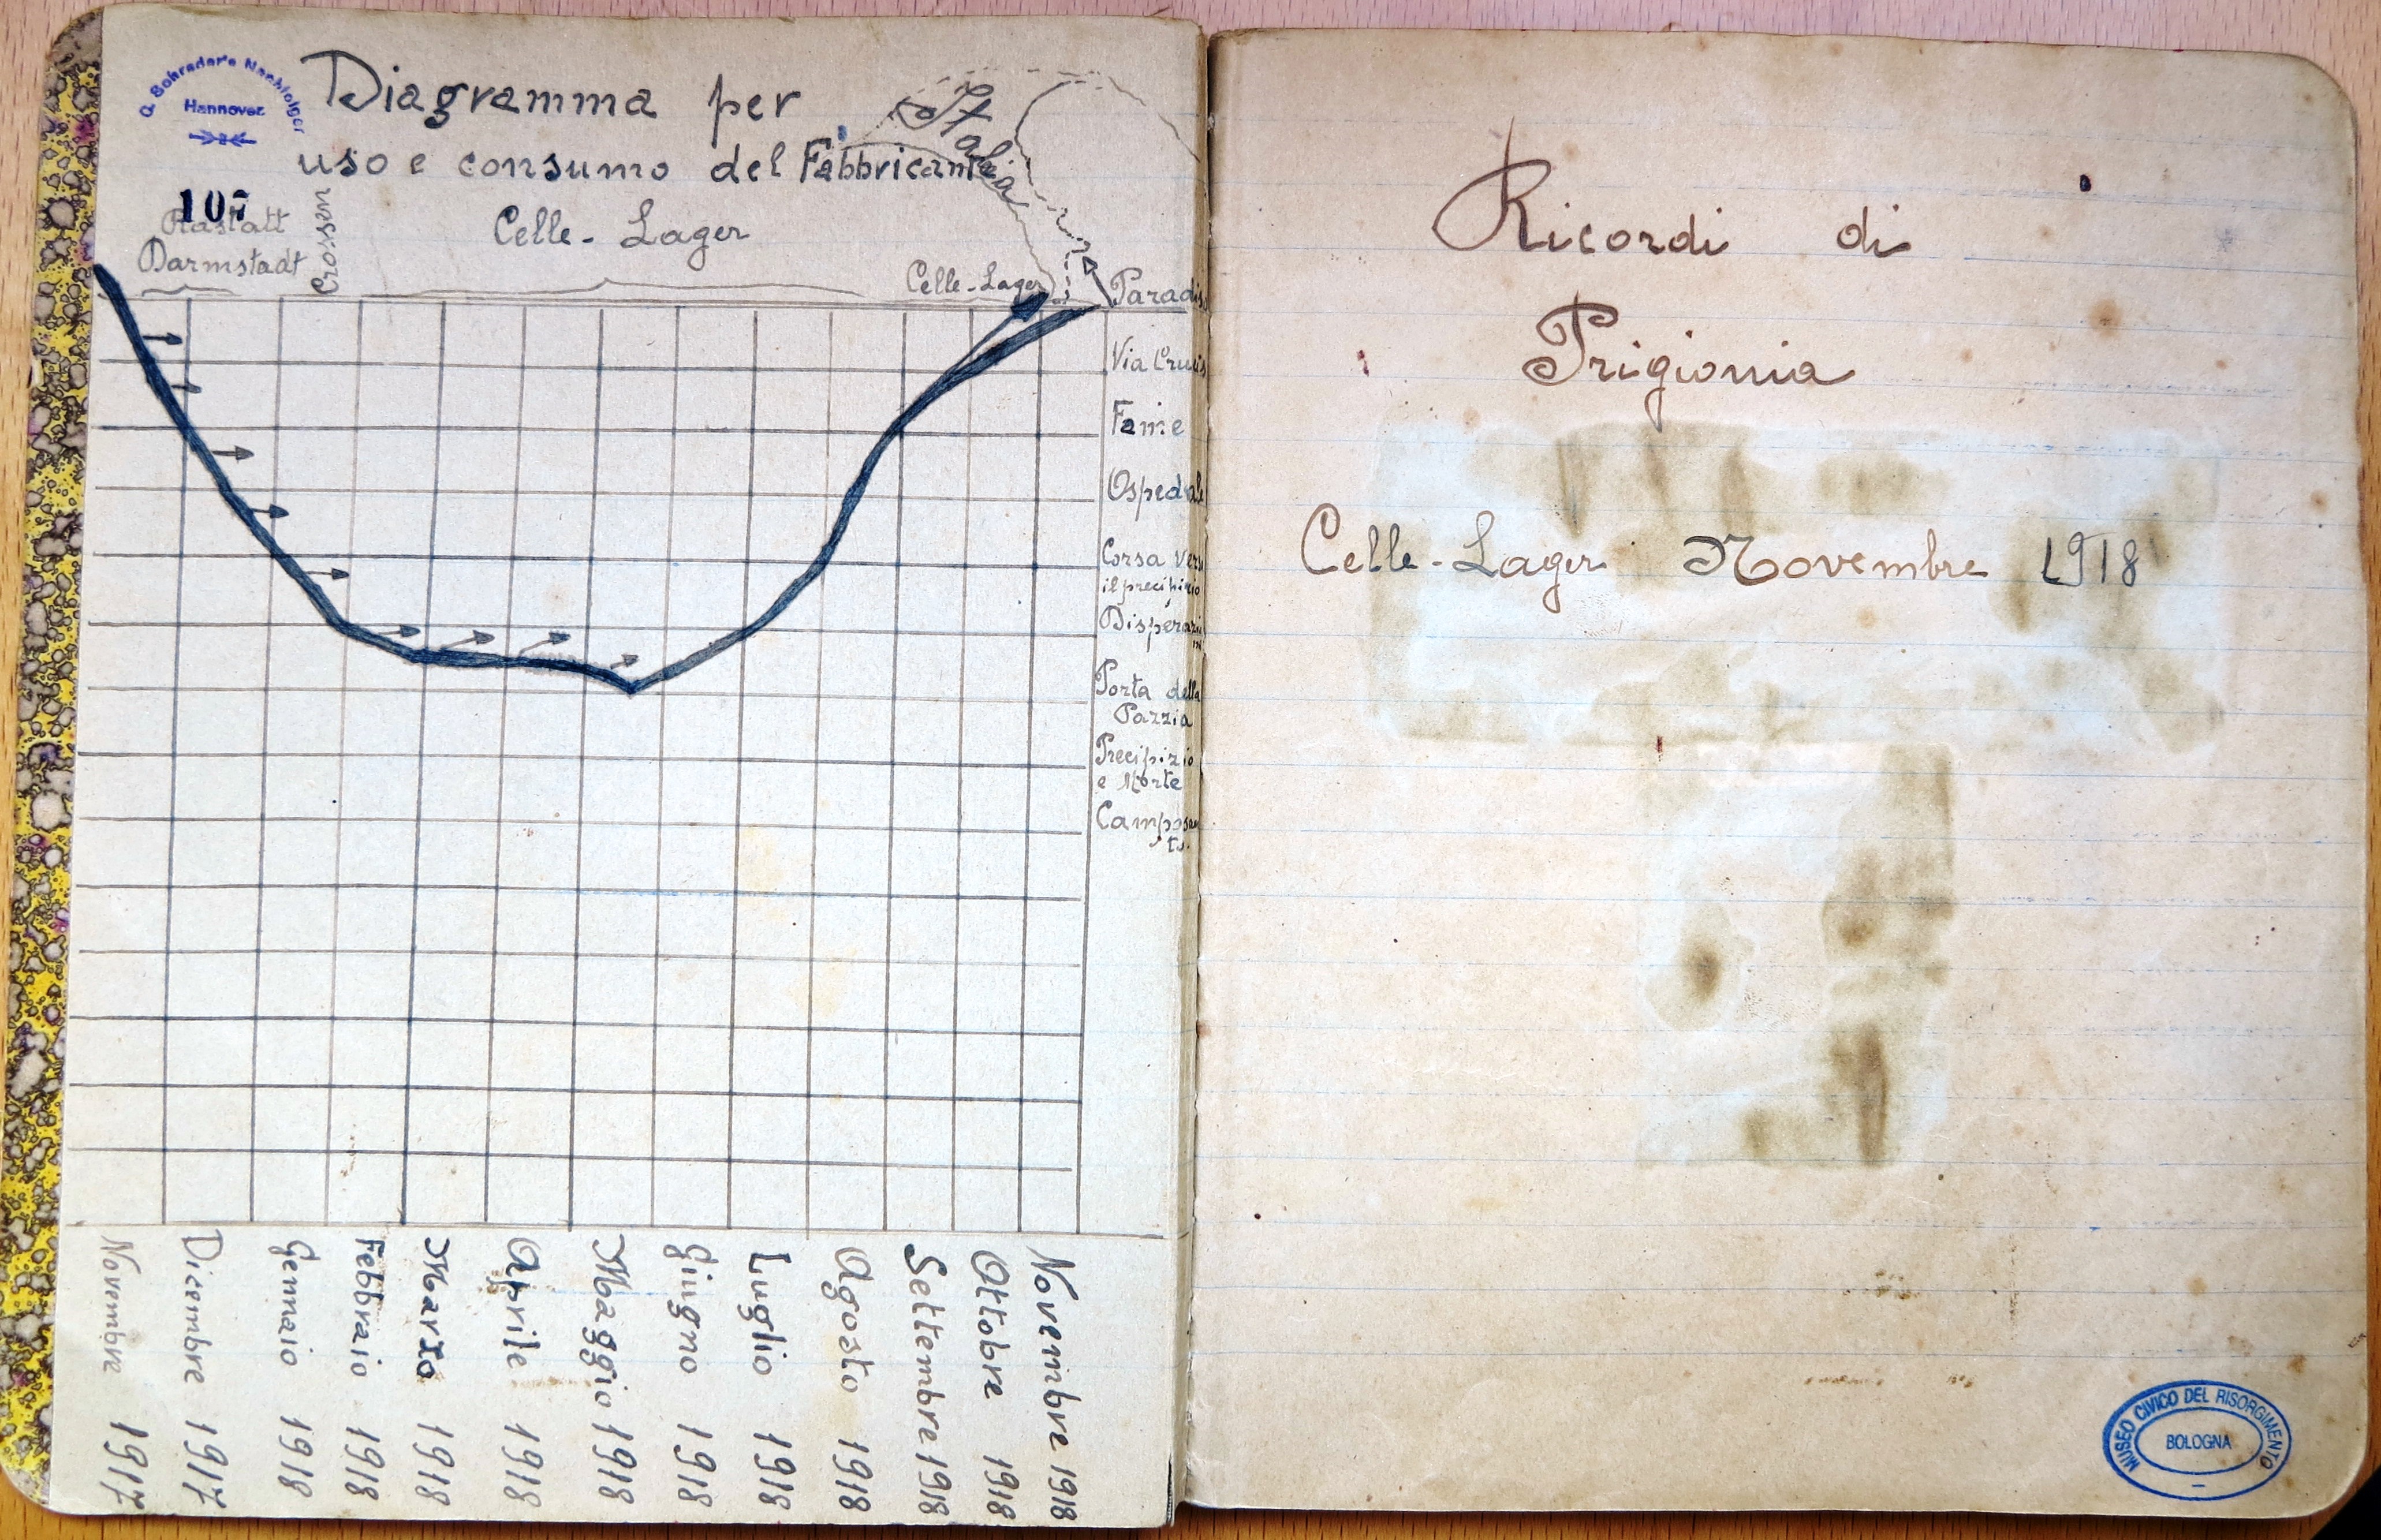 G. Schrader's Nachfolger
Hannover
Diagramma per
uso e consumo del Fabbricante
Italia
107
Rastatt
Darmstadt
Crossen
Celle-Lager
Celle-Lager
Paradiso
Via Crucis
Fame
Ospedale
Corsa verso
il precipizio
Disperazi
Porta della
Pazzia
Precipizio
e Morte
Camposan
to
Novembre 1917
Dicembre 1917
Gennaio 1918
Febbraio 1918
Marzo 1918
Aprile 1918
Maggio 1918
Giugno 1918
Luglio 1918
Agosto 1918
Settembre 1918
Ottobre 1918
Novembre 1918
Ricordi di
Prigionia
Celle-Lager Novembre 1918
MUSEO CIVICO DEL RISORGIMENTO
BOLOGNA